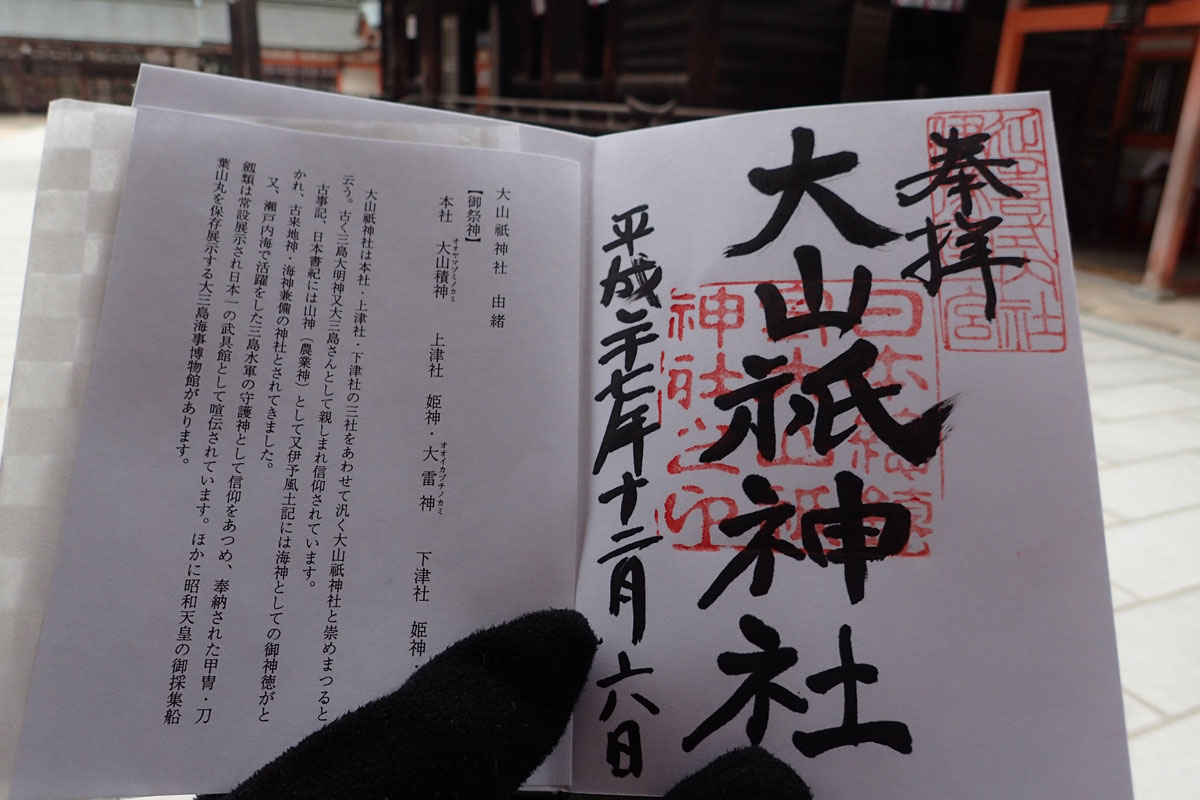 奉拝
大山祇神社
日本総鎮
守大山祇
神社之印
平成二十七年十二月六日
大山祇神社 由緒
【御祭神】
本社 大山積神 上津社 姫神・大雷神 下津社 姫神・
オオヤマヅミノカミ
オオイカヅチノカミ
大山祇神社は本社・上津社・下津社の三社をあわせて汎く大山祇神社と崇めまつると
云う。古く三島大明神又大三島さんとして親しまれ信仰されています。
古事記、日本書紀には山神（農業神）として又伊予風土記には海神としての御神徳がと
かれ、古来地神・海神兼備の神社とされてきました。
又、瀬戸内海で活躍をした三島水軍の守護神として信仰をあつめ、奉納された甲冑・刀
剱類は常設展示され日本一の武具館として喧伝されています。ほかに昭和天皇の御採集船
葉山丸を保存展示する大三島海事博物館があります。